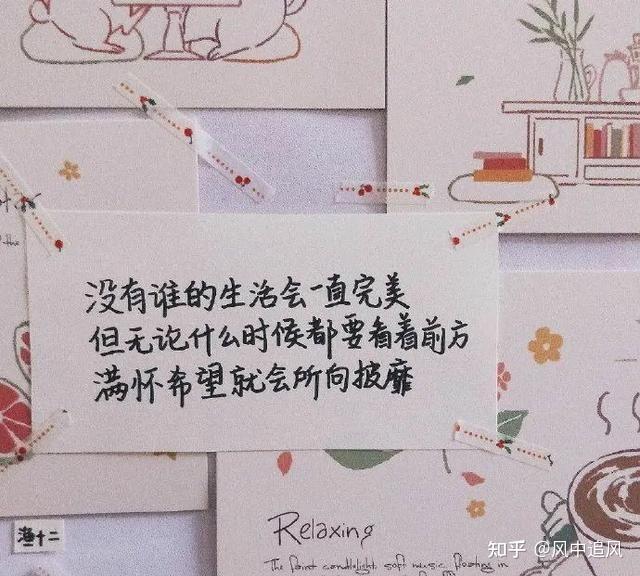 没有谁的生活会一直完美
但无论什么时候都要看着前方
满怀希望就会所向披靡
渔十二
Relaxing
The faint candlelight, soft music floating in
知乎 @风中追风